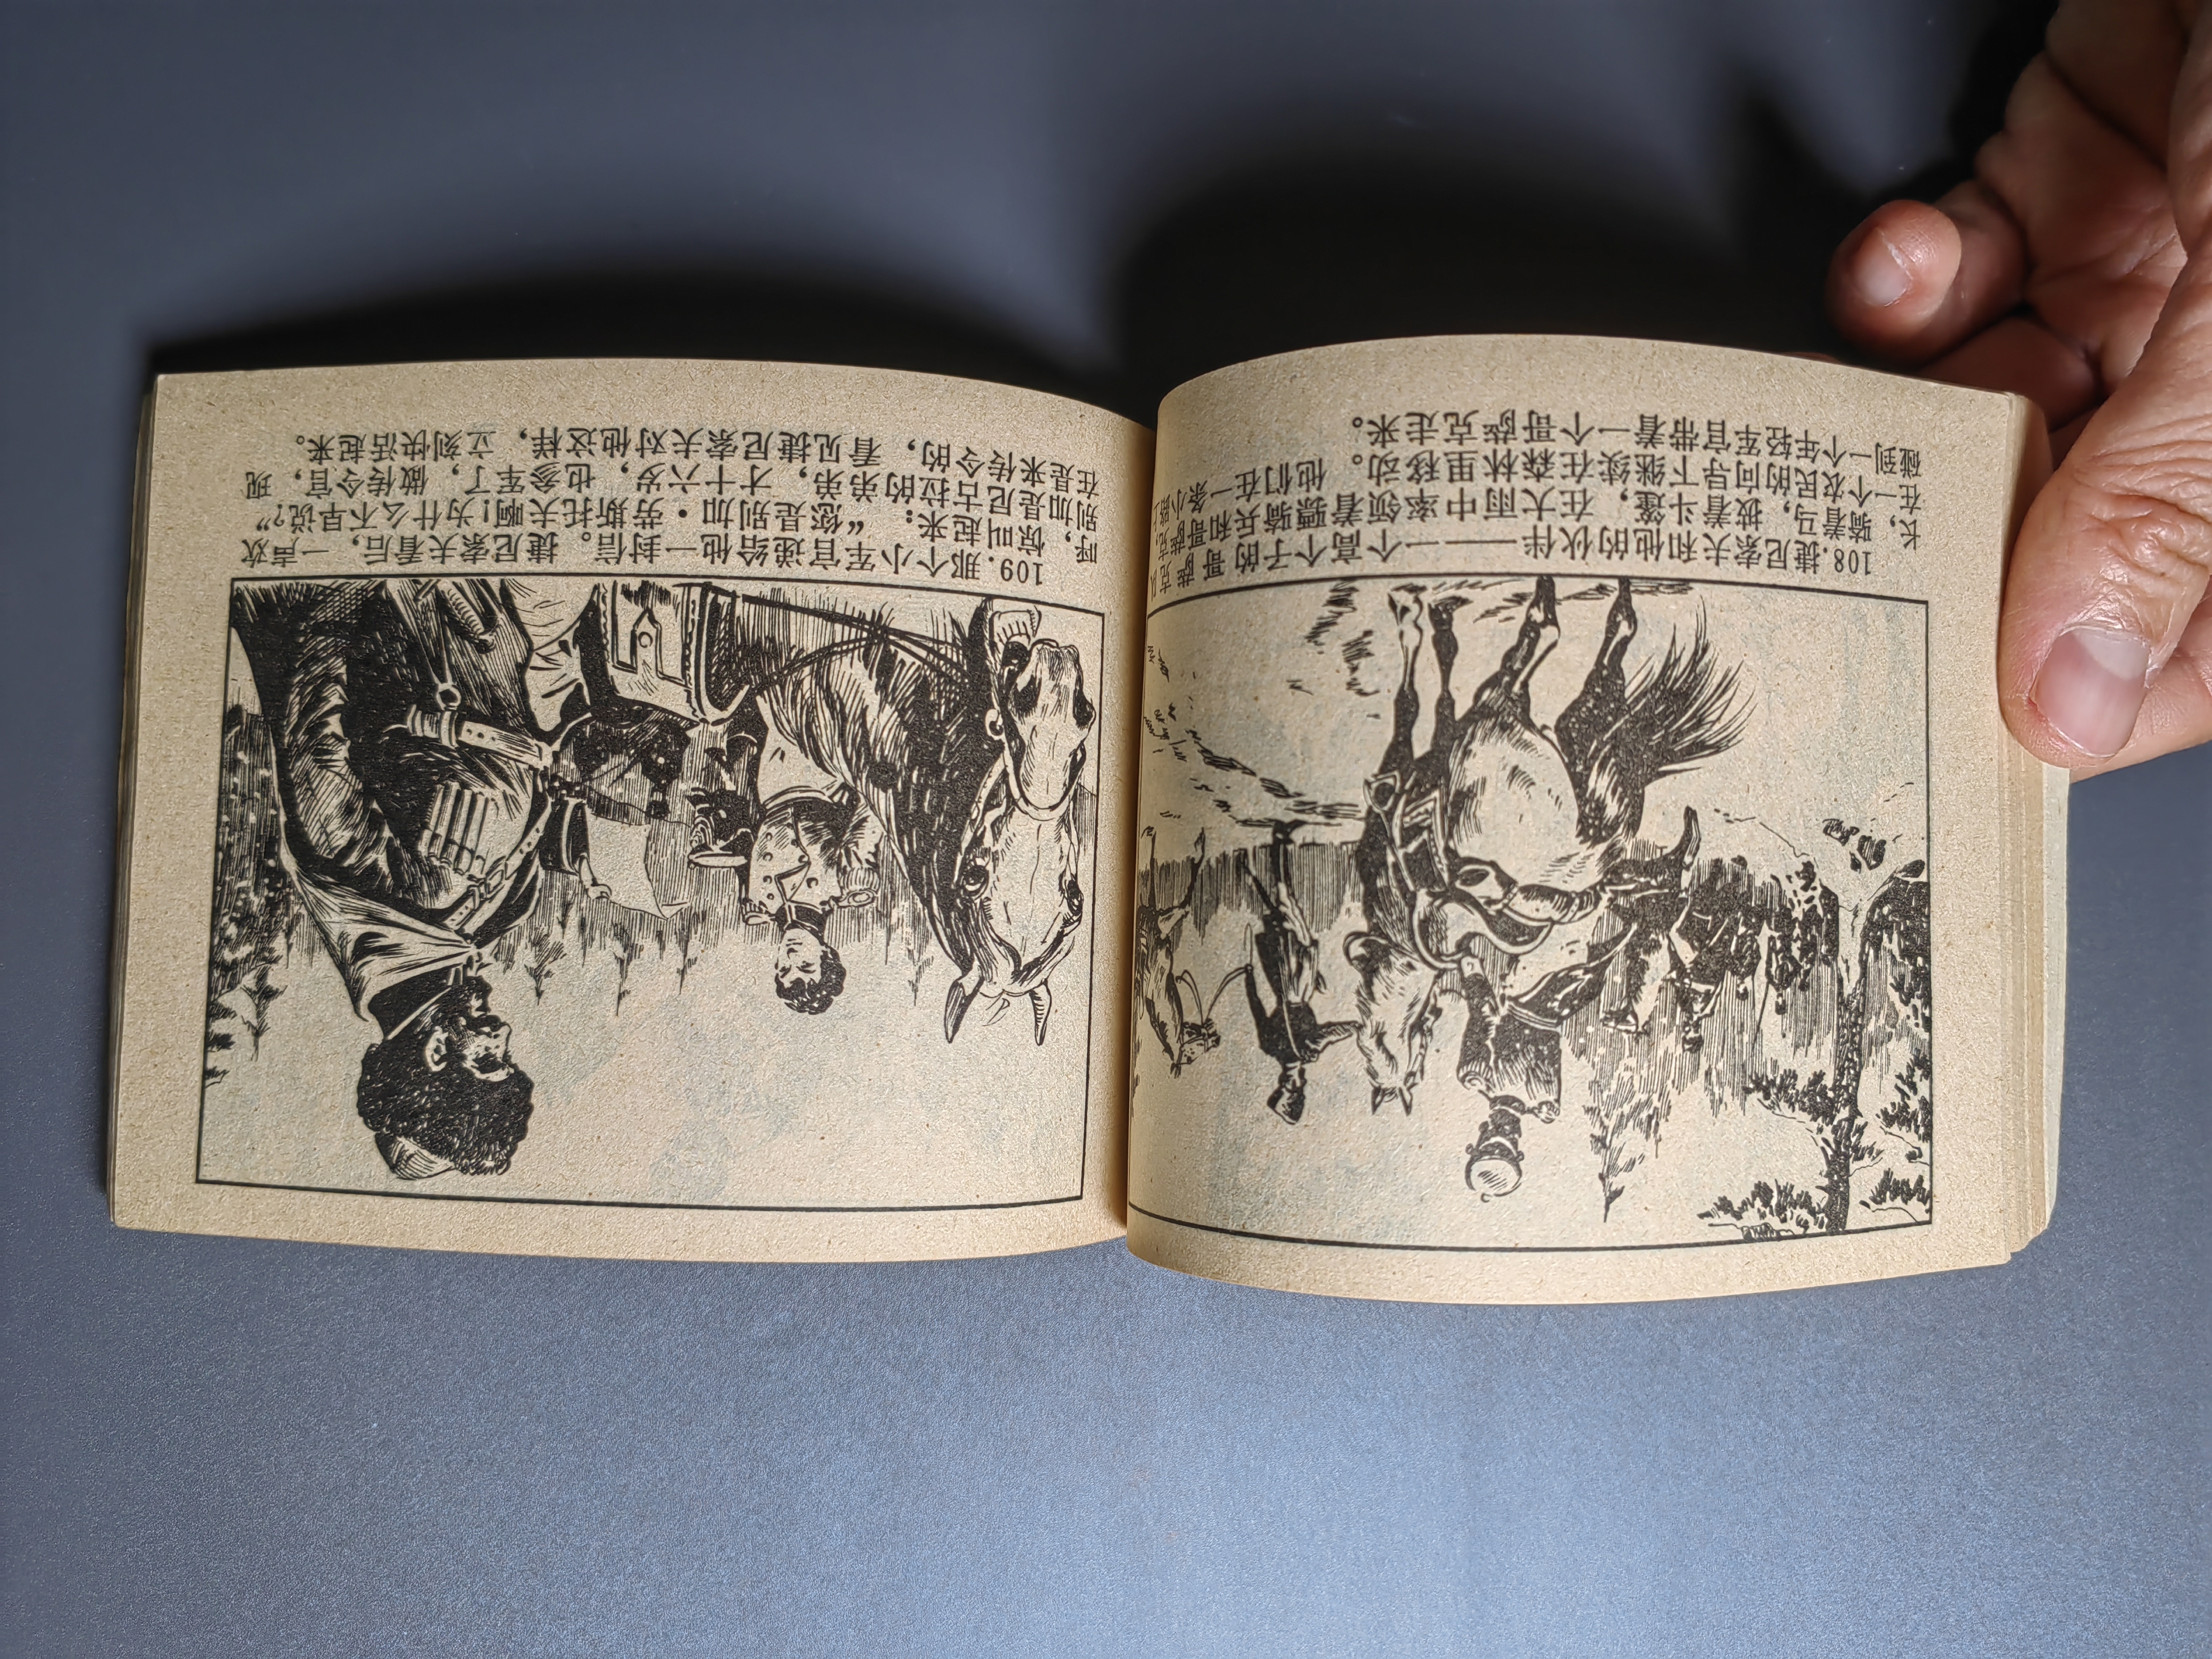 108.捷尼索夫和他的伙伴——一个高个子的哥萨克队
长，骑着马，披着斗篷，在大雨中率领着骠骑兵和哥萨克兵
在一个农民的向导下继续在森林里移动。他们在一条小路上
碰到一个年轻军官带着一个哥萨克走来。
109.那个小军官递给他一封信。捷尼索夫看后，一声欢
呼，惊叫起来：“您是别加·劳斯托夫啊！为什么不早说？”
别加是尼古拉的弟弟，才十六岁，也参军了，做传令官，现
在是来传令的，看见捷尼索夫对他这样，立刻快活起来。